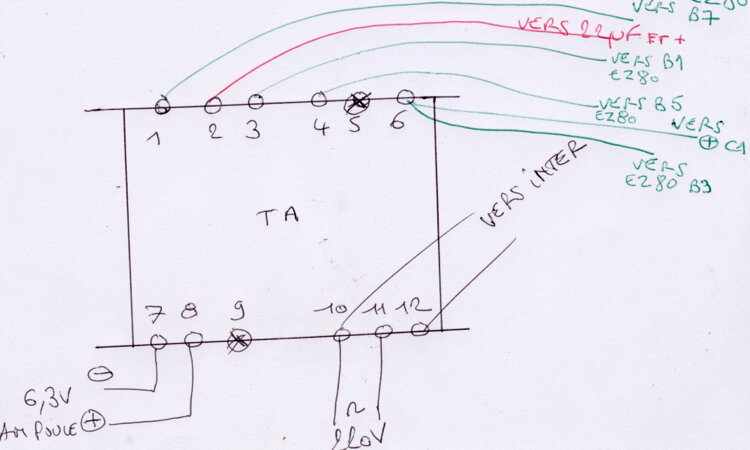 VERS B7
VERS 22µF ET +
VERS B1
EZ80
VERS B5
EZ80
VERS
+ C1
VERS
EZ80 B3
1 2 3 4 5 6
VERS INTER
TA
7 8 9 10 11 12
-
6,3V
AMPOULE +
~
220V